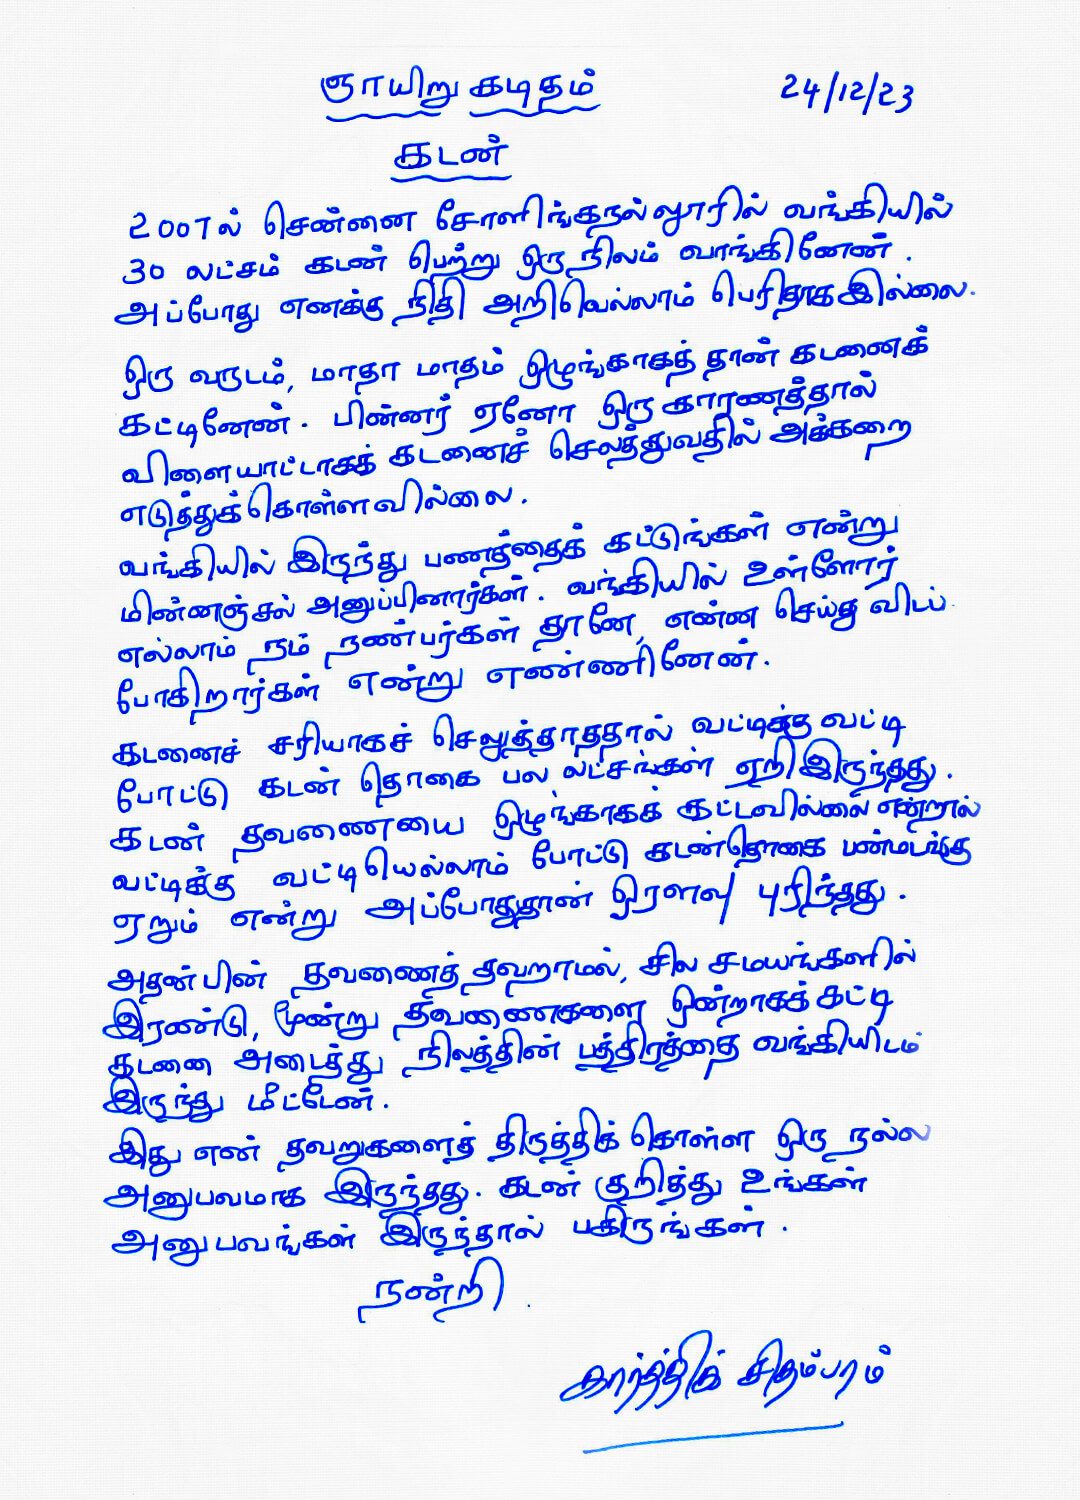 ஞாயிறு கடிதம்
24/12/23
கடன்
2007ல் சென்னை சோளிங்கநல்லூரில் வங்கியில்
30 லட்சம் கடன் பெற்று ஒரு நிலம் வாங்கினேன்.
அப்போது எனக்கு நிதி அறிவெல்லாம் பெரிதாக இல்லை.
ஒரு வருடம், மாதா மாதம் ஒழுங்காகத் தான் கடனைக்
கட்டினேன். பின்னர் ஏனோ ஒரு காரணத்தால்
விளையாட்டாகக் கடனைச் செலுத்துவதில் அக்கறை
எடுத்துக்கொள்ளவில்லை.
வங்கியில் இருந்து பணத்தைக் கட்டுங்கள் என்று
மின்னஞ்சல் அனுப்பினார்கள். வங்கியில் உள்ளோர்
எல்லாம் நம் நண்பர்கள் தானே, என்ன செய்து விடப்
போகிறார்கள் என்று எண்ணினேன்.
கடனைச் சரியாகச் செலுத்தாததால் வட்டிக்கு வட்டி
போட்டு கடன் தொகை பல லட்சங்கள் ஏறி இருந்தது.
கடன் தவணையை ஒழுங்காகக் கட்டவில்லை என்றால்
வட்டிக்கு வட்டியெல்லாம் போட்டு கடன்தொகை பன்மடங்கு
ஏறும் என்று அப்போதுதான் ஓரளவு புரிந்தது.
அதன்பின் தவணைத் தவறாமல், சில சமயங்களில்
இரண்டு, மூன்று தவணைகளை ஒன்றாகக் கட்டி
கடனை அடைத்து நிலத்தின் பத்திரத்தை வங்கியிடம்
இருந்து மீட்டேன்.
இது என் தவறுகளைத் திருத்திக் கொள்ள ஒரு நல்ல
அனுபவமாக இருந்தது. கடன் குறித்து உங்கள்
அனுபவங்கள் இருந்தால் பகிருங்கள்.
நன்றி.
கார்த்திக் சிதம்பரம்